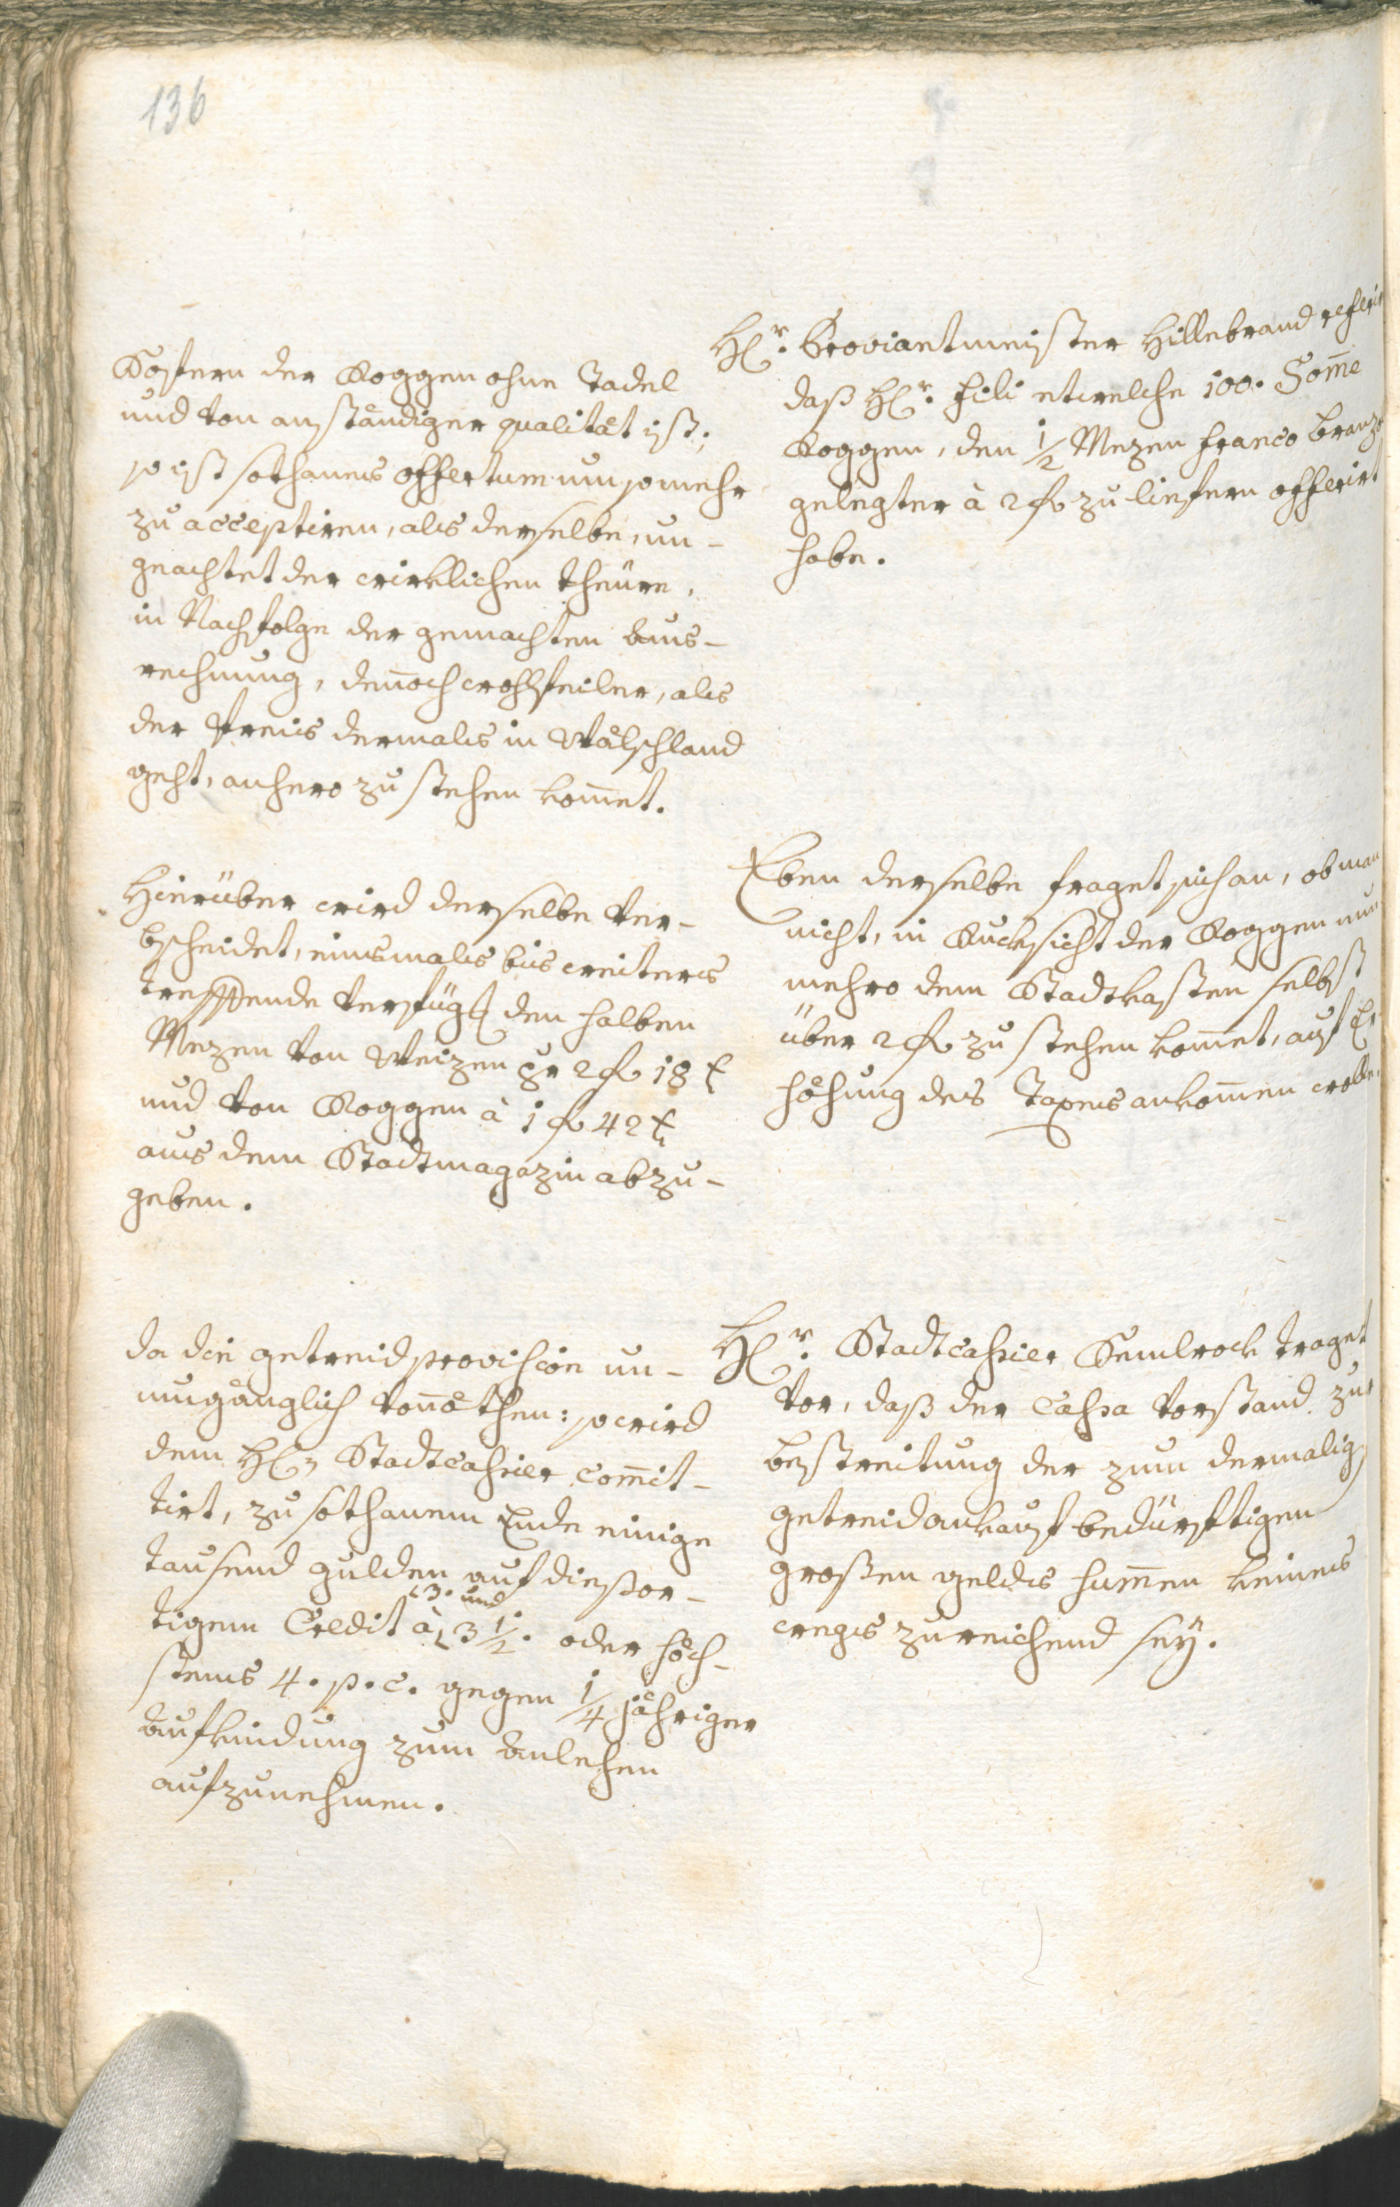 136
Hr. Proviantmeister Hillebrand referirt
daß Hr. Fili etwelche 100. Some
Roggen, den 1/2 Mezen franco Branzo
gelegter à 2 f zu liefern offerirt
habe.
Rofern der Roggen ohne Tadel
und von anständiger qualitæt ist;
so ist sothanes offertum um so mehr
zu acceptiren, als derselbe, un-
geachtet der wirklichen theüre,
in Nachfolge der gemachten Aus-
rechnung, denoch wohlfeiler, als
der Preis dermals in Wälschland
geht, anhero zu stehen komet.
Eben derselbe fraget sich an, ob man
nicht, in Rucksicht der Roggen nun
mehro dem Stadtkasten selbst
über 2 f zu stehen komet, auf Er
höhung des Taxes ankomen wolle.
Hierüber wird derselbe ver-
bscheidet, einsmals bis weiters
treffende Verfügg den halben
Mezen von Weizen pr 2 f 18 x
und von Roggen à 1 f 42 x
aus dem Stadtmagazin abzu-
geben.
Hr. Stadtcassier Remlrock traget
vor, daß der Cassa Vorstand zur
bestreitung der zum dermalig
getreidankauf bedürftigen
großen geldes sumen keines
weegs zureichend seÿ.
Da die getreid provision un-
umgänglich vonöthen: so wird
dem Hrn Stadtcassier comit-
tirt, zu sothanem Ende einige
tausend gulden auf diesor-
tigem Credit à 3. und 3 1/2. oder höch-
stens 4. p. c. gegen 1/4 jähriger
Aufkindung zum Anlehen
aufzunehmen.